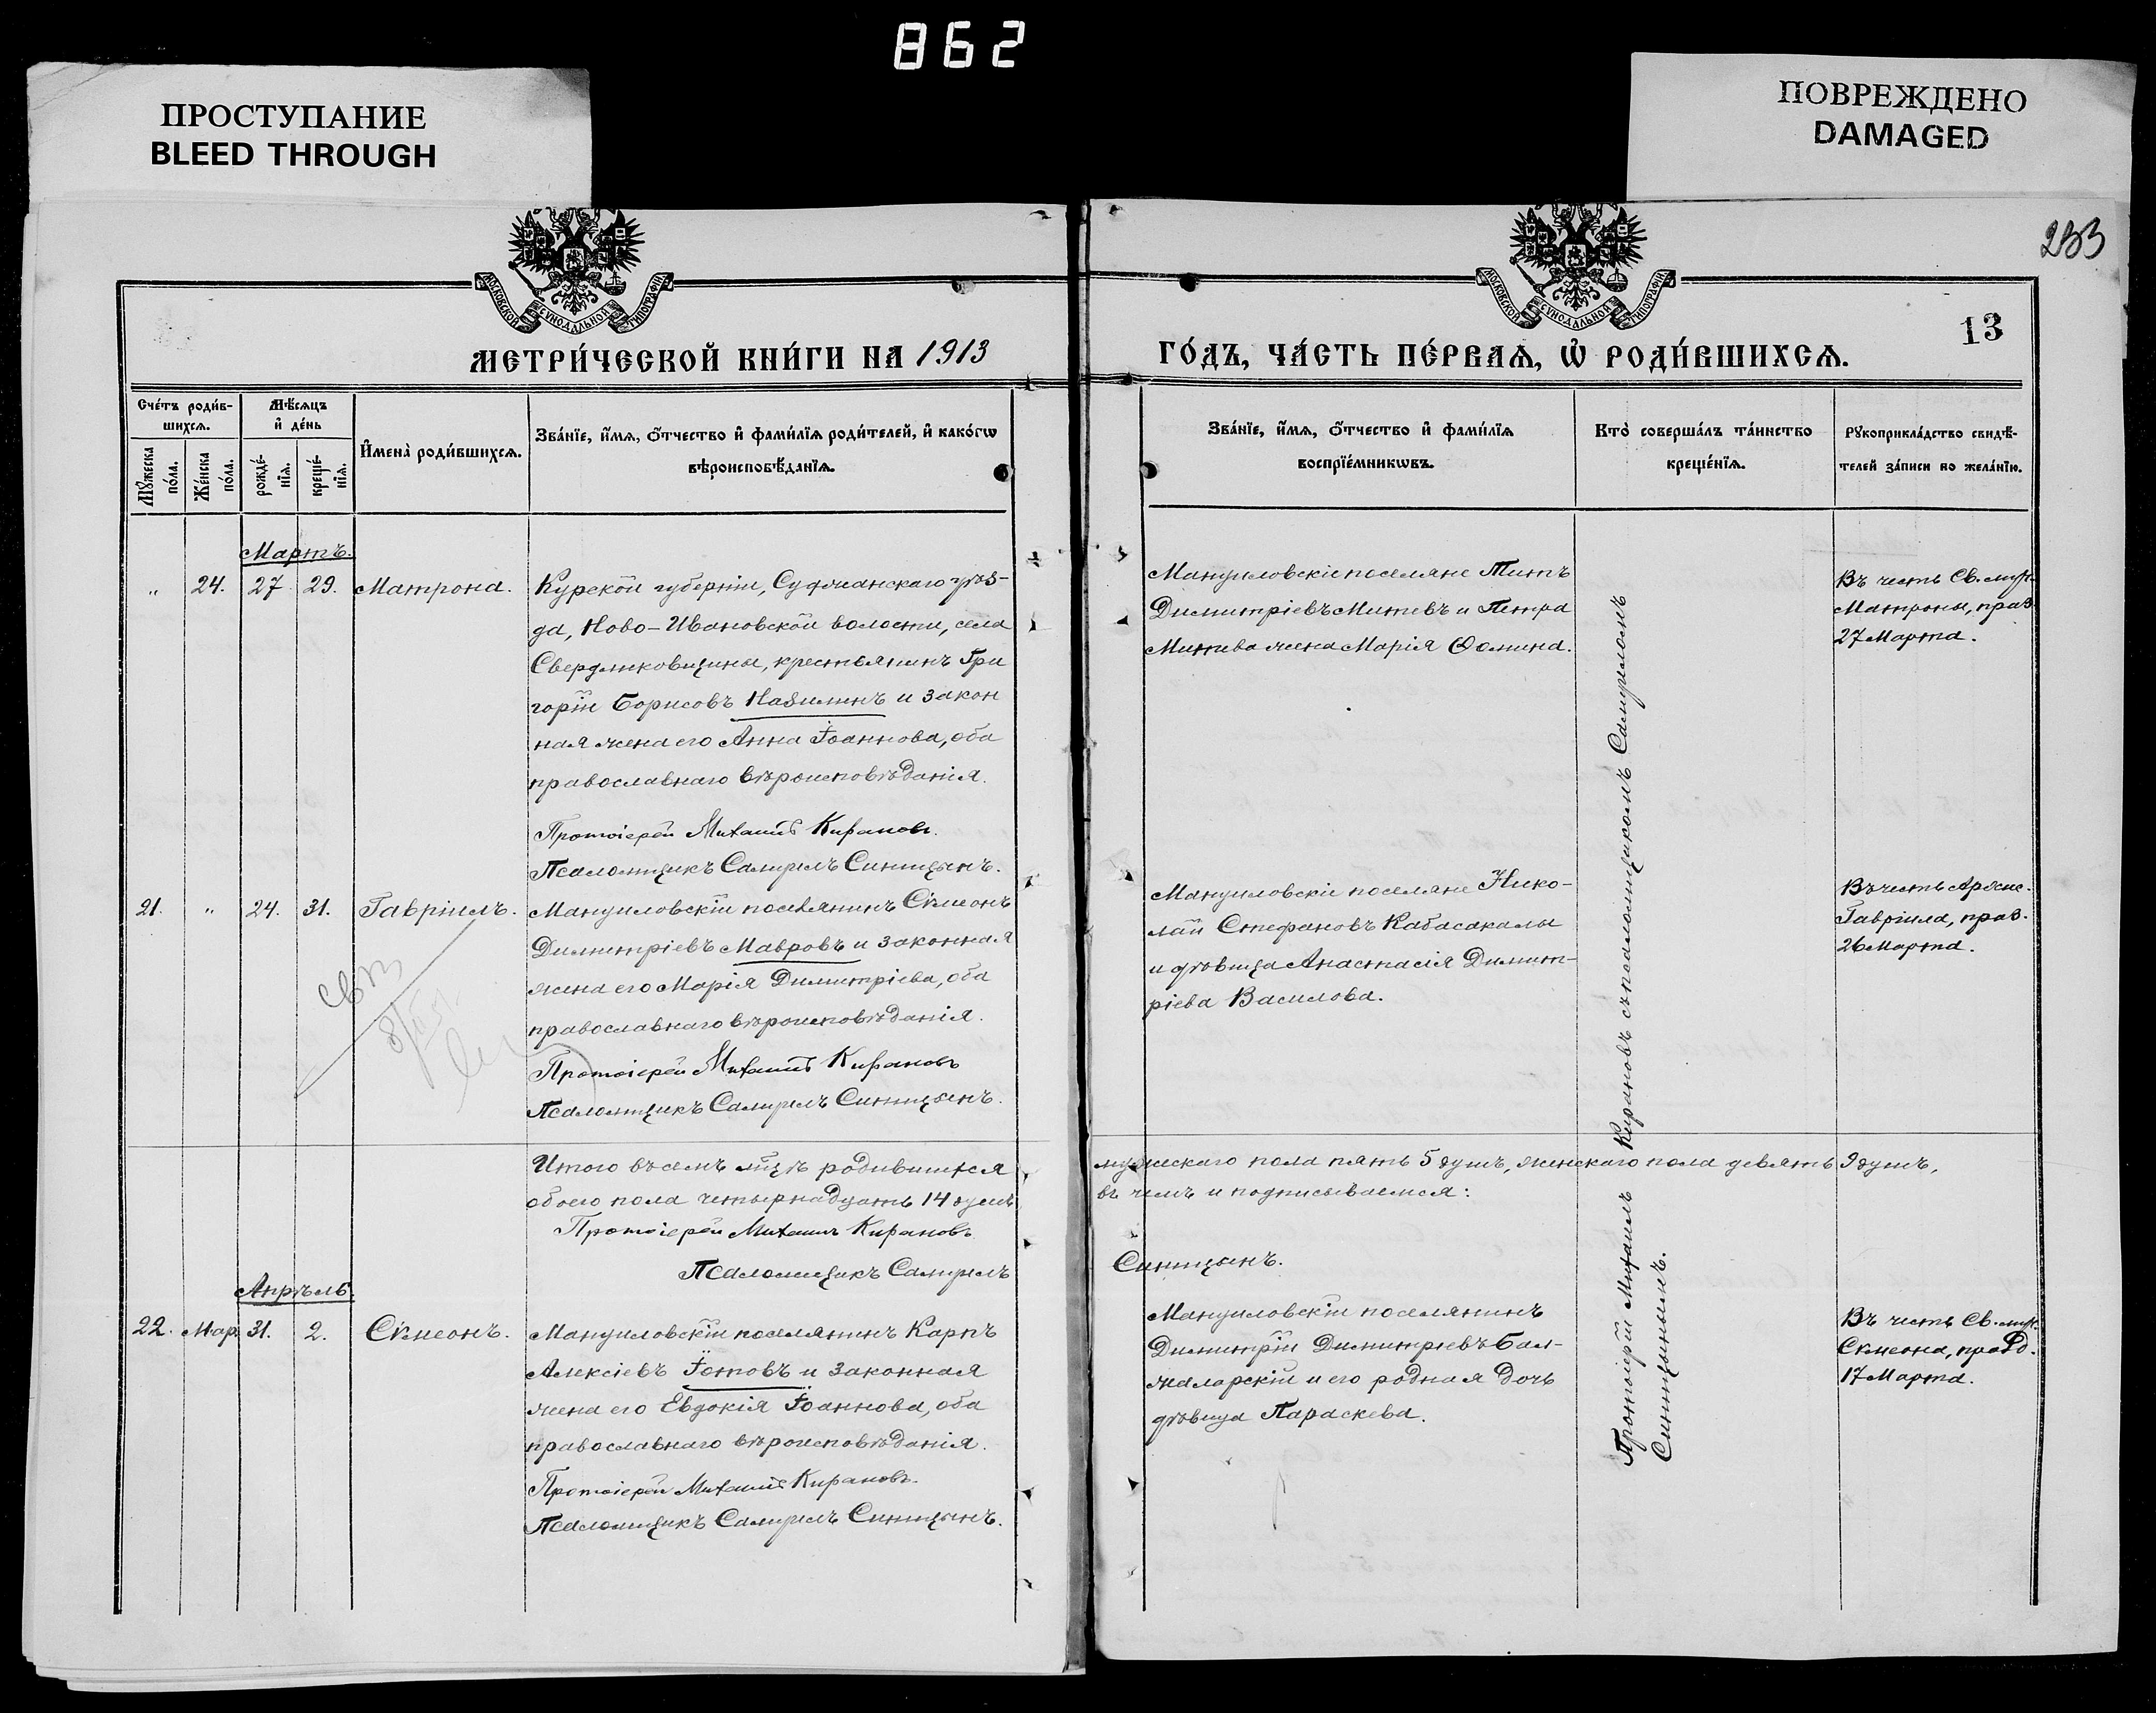 862
ПРОСТУПАНИЕ
BLEED THROUGH
ПОВРЕЖДЕНО
DAMAGED
233
МОСКОВСКОЙ СѴНОДАЛЬНОЙ ТИПОГРАФІИ
МОСКОВСКОЙ СѴНОДАЛЬНОЙ ТИПОГРАФІИ
13
МЕТРИ́ЧЕСКОЙ КНИ́ГИ НА 1913
ГО́ДЪ, ЧА́СТЬ ПЕ́РВАѦ, Ѡ҆ РОДИ́ВШИХСѦ.
Сче́тъ роди́в-
шихсѧ.
Мѣ́сѧцъ
и҆ де́нь
Мꙋ́жеска
по́ла.
Же́нска
по́ла.
рожде́-
нїѧ.
креще́-
нїѧ.
И҆мена̀ роди́вшихсѧ.
Зва́нїе, и҆́мѧ, ѻ҆́тчество и҆ фами́лїѧ роди́телей, и҆ како́гѡ
вѣроисповѣ́данїѧ.
Зва́нїе, и҆́мѧ, ѻ҆́тчество и҆ фами́лїѧ
воспрїе́мникѡвъ.
Кто̀ соверша́лъ та́инство
креще́нїѧ.
Рꙋкоприкла́дство свидѣ́-
телей за́писи по жела́нїю.
Мартъ.
„ 24. 27 29. Матрона.
Курской губернiи, Суджанскаго уѣз-
да, Ново-Ивановской волости, села
Свердликовщины, крестьянинъ Гри
горiй Борисовъ Навилинъ и закон
ная жена его Анна Іоаннова, оба
православнаго вѣроисповѣданiя.
Протоiерей Михаилъ Кирановъ.
Псаломщикъ Самуилъ Синицынъ.
Мануиловскiе поселяне Титъ
Димитрiевъ Митевъ и Петра
Митева жена Марiя Ѳомина.
Въ честь Св. муч.
Матроны, праз.
27 Марта.
21. „ 24. 31. Гаврiилъ.
Мануиловскiй поселянинъ Сѵмеонъ
Димитрiевъ Мавровъ и законная
жена его Марiя Димитрiева, оба
православнаго вѣроисповѣданiя.
Протоiерей Михаилъ Кирановъ
Псаломщикъ Самуилъ Синицынъ.
Мануиловскiе поселяне Нико-
лай Стефановъ Кабасакалы
и дѣвица Анастасiя Димит-
рiева Василова.
Въ честь Архис.
Гаврiила, праз.
26 Марта.
Итого всѣмъ лицъ родившихся
обоего пола четырнадцать 14 душъ
мужескаго пола пять 5 душъ, женскаго пола девять 9 душъ,
въ чемъ и подписываемся:
Протоiерей Михаилъ Кирановъ
Псаломщикъ Самуилъ
Синицынъ.
Апрѣль.
22. Мар. 31. 2. Сѵмеонъ.
Мануиловскiй поселянинъ Карпъ
Алексiевъ Іотовъ и законная
жена его Евдокiя Іоаннова, оба
православнаго вѣроисповѣданiя.
Протоiерей Михаилъ Кирановъ.
Псаломщикъ Самуилъ Синицынъ.
Мануиловскiй поселянинъ
Димитрiй Димитрiевъ Бал-
жаларскiй и его родная дочь
дѣвица Параскева.
Въ честь Св. муч.
Сѵмеона, празд.
17 Марта.
Протоiерей Михаилъ Кирановъ съ псаломщикомъ Самуиломъ
Синицынымъ.